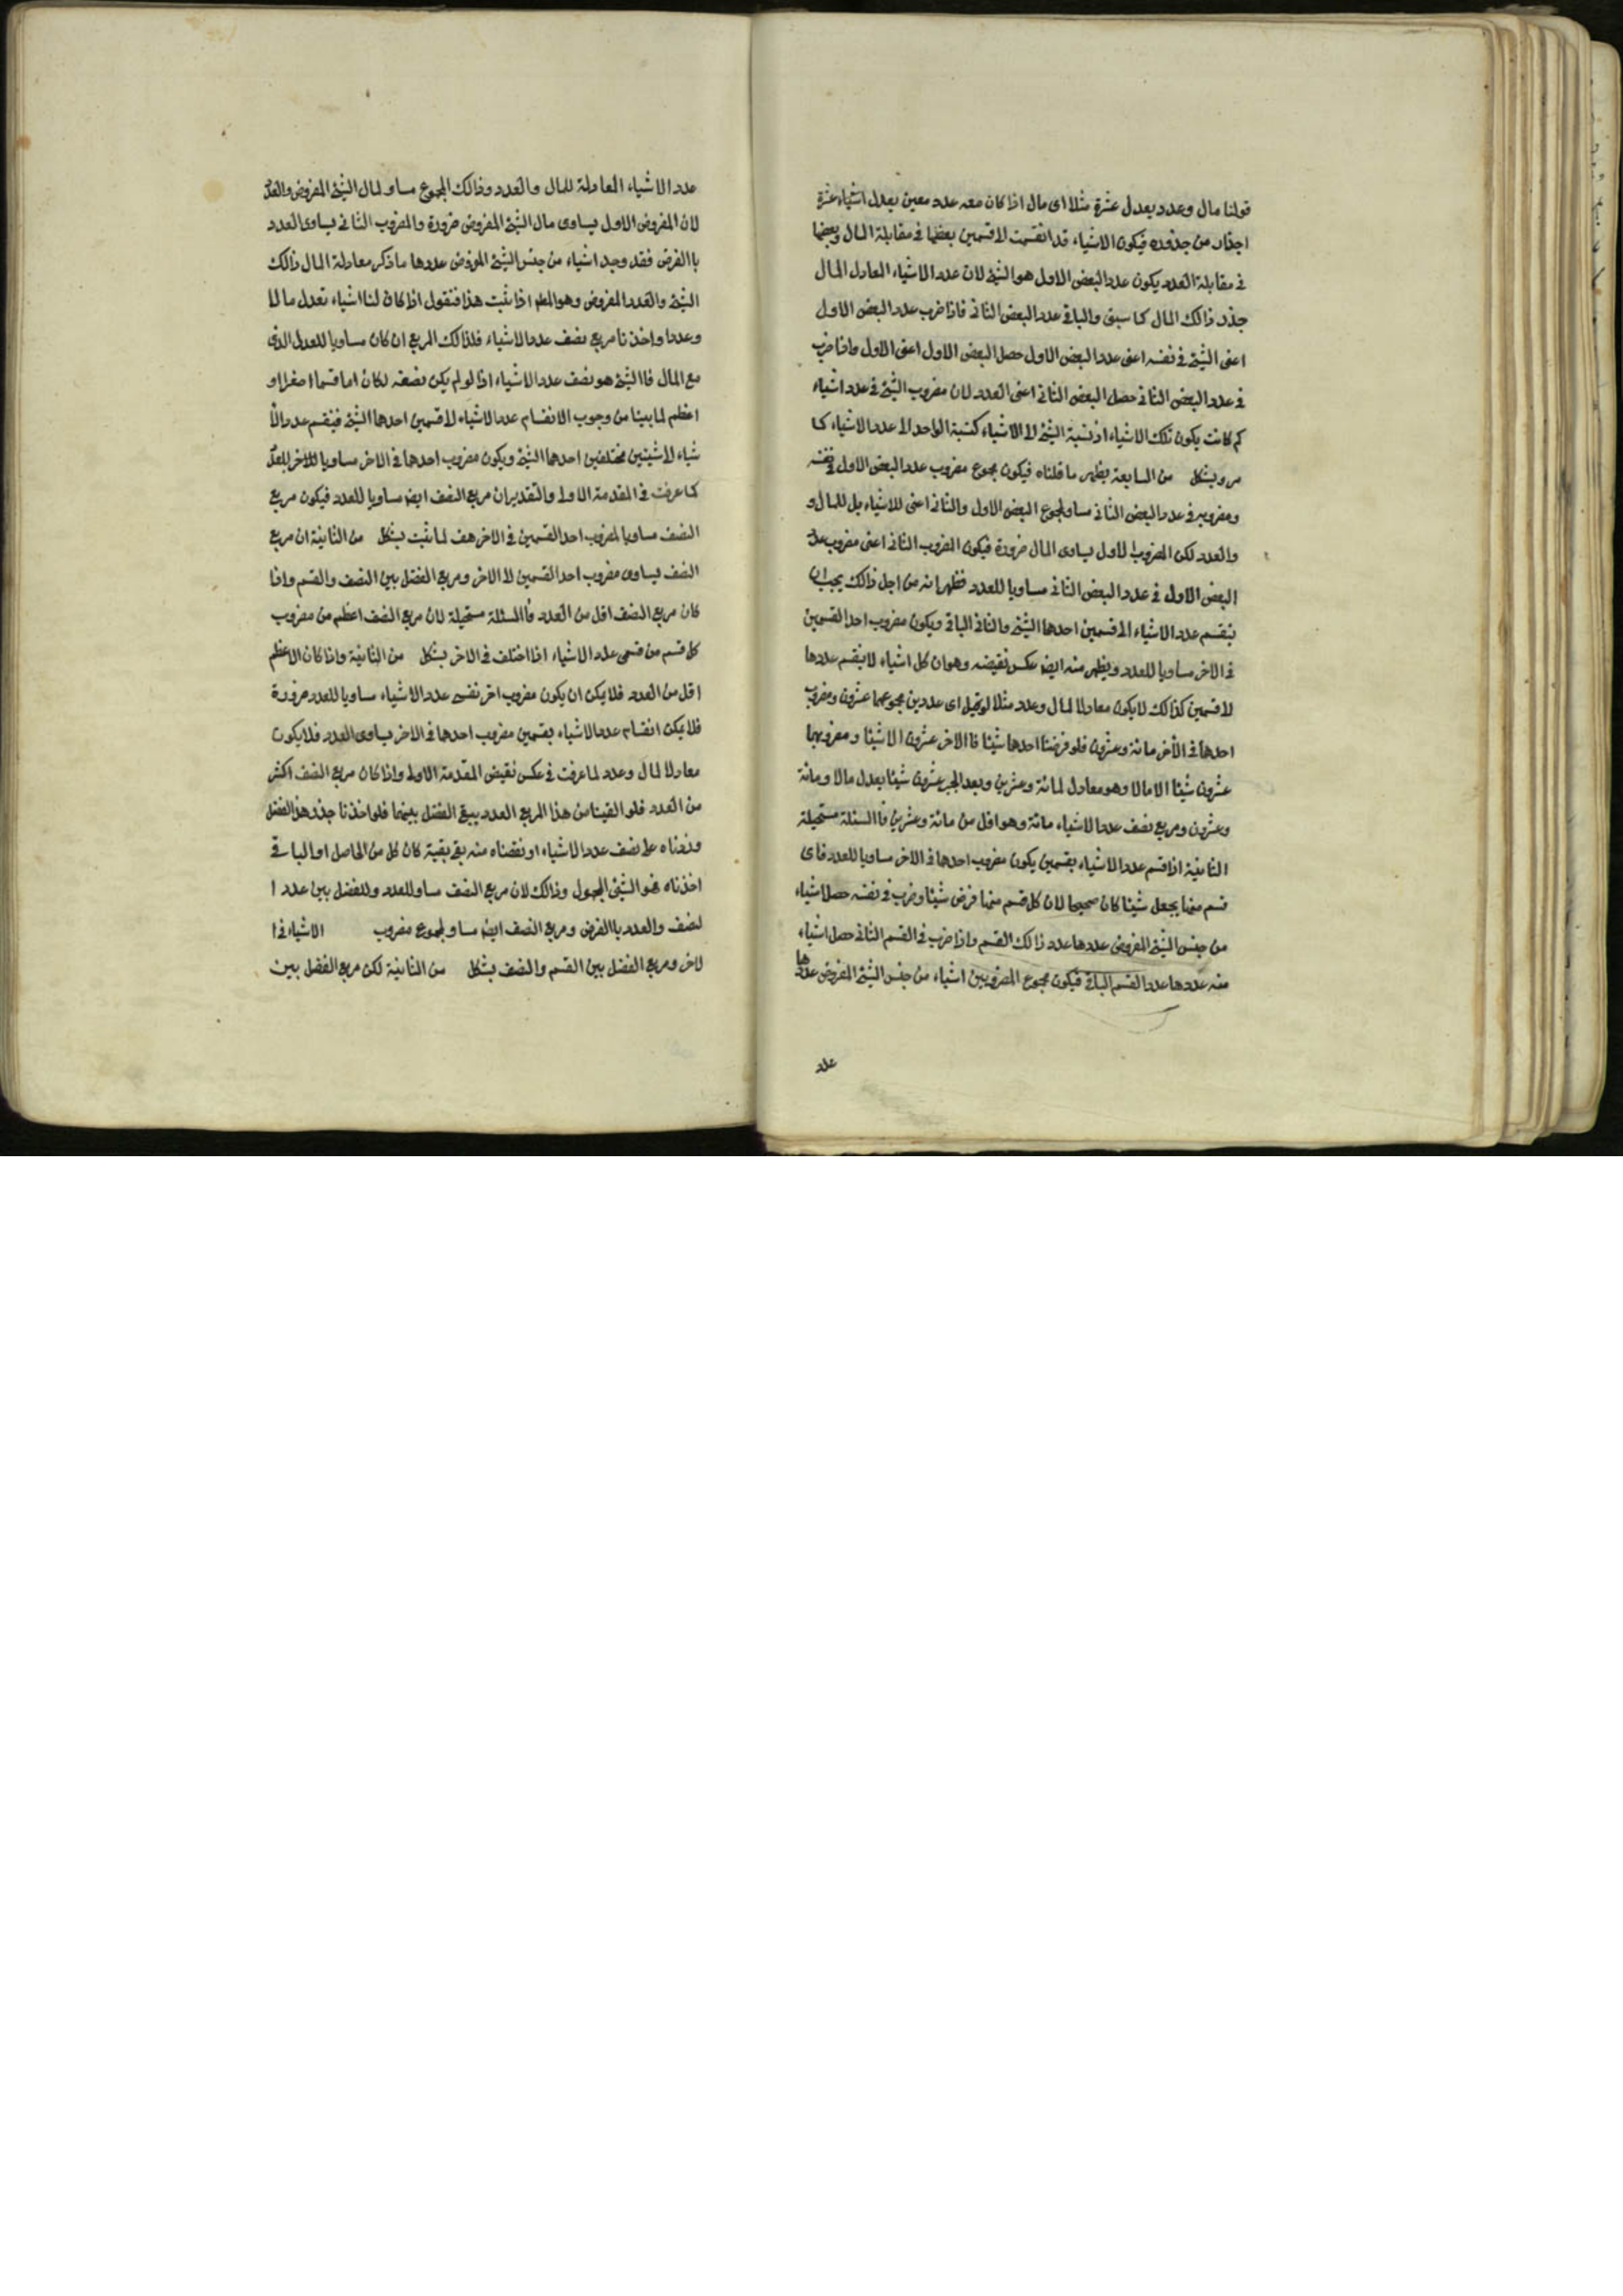 قولنا مال وعدد يعدل عشرة مثلا اى مال اذا كان معه عدد معين يعدل اشياء عشرة
اجذار من جذوره فيكون الاشياء قد انقسمت لا قسمين بعضها فى مقابلة المال وبعضها
فى مقابلة العدد يكون عدد البعض الاول هو الشئ لان عدد الاشياء المعادل المال
جذر ذالك المال كما سبق والباقى عدد البعض الثانى فاذا ضرب عدد البعض الاول
اعنى الشئ فى نفسه اعنى عدد البعض الاول حصل البعض الاول اعنى الاول واذا ضرب
فى عدد البعض الثانى حصل البعض الثانى اعنى العدد لان مضروب الشئ فى عدد اشياء
كم كانت يكون تلك الاشياء اذ نسبة الشئ لا الاشياء كنسبة الواحد لا عدد الاشياء كما
مر وبشكل من السابعة يظهر ما قلناه فيكون مجموع مضروب عدد البعض الاول فى نفسه
ومضروبه فى عدد البعض الثانى مساو لمجموع البعض الاول والثانى اعنى للاشياء بل للمال و
والعدد لكن المضروب الاول يساوى المال ضرورة فيكون المضروب الثانى اعنى مضروب عدد
البعض الاول فى عدد البعض الثانى مساويا للعدد فظهر انه من اجل ذالك يجب ان
ينقسم عدد الاشياء الى قسمين احدها الشئ والثانى الباقى ويكون مضروب احد القسمين
فى الاخر مساويا للعدد ويظهر منه ايضا عكس نقيضه وهو ان كل اشياء لا ينقسم عددها
لا قسمين كذالك لا يكون معادلا لمال وعدد مثلا لو قيل اى عددين مجموعهما عشرون ومضروب
احدها فى الأخر مائة وعشرون فلو فرضنا احدها شيئا فا الاخر عشرون الا شيئا ومضروبهما
عشرون شيئا الا مالا وهو معادل لمائة وعشرين وبعد الجبر عشرون شيئا يعدل مالا ومائة
وعشرون ومربع نصف عدد الاشياء مائة وهو اقل من مائة وعشرين فا المسئلة مستحيلة
الثانية اذا قسم عدد الاشياء بقسمين يكون مضروب احدها فى الاخر مساويا للعدد فاى
قسم منهما يجعل شيئا كان صحيحا لان كل قسم منهما فرض شيئا وضرب فى نفسه حصل اشياء
من جنس الشئ المفروض عددها عدد ذالك القسم واذا ضرب فى القسم الثانى حصل اشياء
منه عددها عدد القسم الباقى فيكون مجموع المضروبين اشياء من جنس الشئ المفروض عددها
عدد
عدد الاشياء المعادلة للمال والعدد وذالك المجموع مساو لمال الشئ المفروض والعدد
لان المفروض الاول يساوى مال الشئ المفروض ضرورة والمضروب الثانى يساوى العدد
با الفرض فقد وجد اشياء من جنس الشئ المفروض عددها ما ذكر معادلة المال ذالك
الشئ والعدد المفروض وهو المطلو اذا ثبت هذا فنقول اذا كان لنا اشياء تعدل مالا
وعددا واخذنا مربع نصف عدد الاشياء فذالك المربع ان كان مساويا للعدد الذى
مع المال فا الشئ هو نصف عدد الاشياء اذا لو لم يكن نصفه لكان اما قسما اصغر او
اعظم لما بينا من وجوب الانقسام عدد الاشياء لا قسمين احدها الشئ فينقسم عدد الا
شياء لا شيئين مختلفين احدها الشئ ويكون مضروب احدها فى الاخر مساويا للاخر للعدد
كما عرفت فى المقدمة الاولى والتقدير ان مربع النصف ايضا مساويا للعدد فيكون مربع
النصف مساويا لمضروب احد القسمين فى الاخر هف لما ثبت بشكل من الثانية ان مربع
النصف يساوى مضروب احد القسمين لا الاخر ومربع الفضل بين النصف والقسم واذا
كان مربع النصف اقل من العدد فا المسئلة مستحيلة لان مربع النصف اعظم من مضروب
كل قسم من قسمى عدد الاشياء اذا اختلف فى الاخر بشكل من الثانية واذا كان الاعظم
اقل من العدد فلا يمكن ان يكون مضروب اخر نفسى عدد الاشياء مساويا للعدد ضرورة
فلا يمكن انقسام عدد الاشياء بقسمين مضروب احدها فى الاخر يساوى العدد فلا يكون
معادلا لمال وعدد لما عرفت فى عكس نقيض المقدمة الاولى واذا كان مربع النصف اكثر
من العدد فلو القينا من هذا المربع العدد يبقى الفضل بينهما فلو اخذنا جذر هذا الفضل
وزدناه على نصف عدد الاشياء او نقصناه منه بقى بقية كان كل من الحاصل او الباقى
اخذناه هو الشئ المجهول وذالك لان مربع النصف مساو للعدد وللفضل بين عدد ا
لنصف والعدد با الفرض ومربع النصف ايضا مساو لمجموع مضروب الاشياء فى ا
لاخر ومربع الفضل بين القسم والنصف بشكل من الثانية لكن مربع الفضل بين